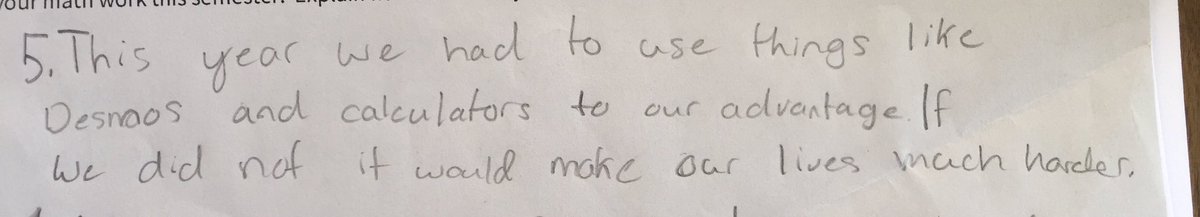 your math work this semester.
5. This year we had to use things like
Desmos and calculators to our advantage. If
we did not it would make our lives much harder.